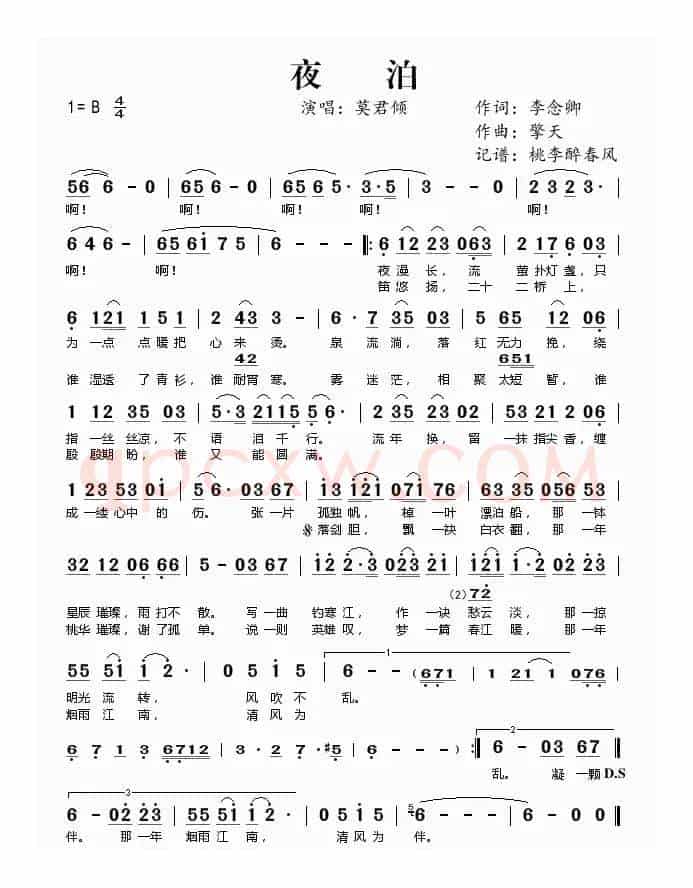 夜 泊
1= B 4/4 演唱：莫君倾 作词：李念卿
作曲：擎天
记谱：桃李醉春风
56 6 - 0 | 65 6 - 0 | 65 6 5· 3·5 | 3 - - 0 | 2 3 2 3 |
啊！ 啊！ 啊！ 啊！ 啊！
6 4 6 - | 65 61 75 | 6 - - - ‖: 6 12 23 063 | 2 176 03 |
啊！ 啊！ 夜 漫 长，流 萤 扑灯 盏，只
笛 悠 扬，二十 二 桥 上，
6 121 151 | 2 43 3 - | 6· 7 35 03 | 5 65 12 06 |
为 一点 点 暖 把 心 来 烫。 泉 流 淌，落 红 无力 挽，绕
42 651
谁 湿透 了 青 衫，谁 耐宵 寒。 雾 迷 茫，相 聚 太短 暂，谁
1 12 35 03 | 5·3 2115 5 - | 6· 1 23 02 | 53 21 2 06 |
指 一丝 丝凉，不 语 泪 千 行。 流 年 换，留 一抹 指尖 香，缠
殷 殷期 盼，谁 又 能 圆 满。
qpcxw.COM
1 23 53 01 | 5 6· 03 67 | 13 121 071 76 | 63 35 056 53 |
成 一缕 心中 的 伤。 张 一片 孤独 帆，棹 一叶 漂泊 船，那 一钵
落剑 胆，飘 一袂 白衣 翻，那 一年
32 12 06 66 | 5 - 03 67 | 12 2·3 023 21 | 121 1·2 02 35 |
(2) 72
星辰 璀璨，雨 打不 散。 写 一曲 钓寒 江，作 一诀 愁云 淡，那 一掠
桃华 璀璨，谢 了孤 单。 说 一则 英雄 叹，梦 一篇 春江 暖，那 一年
55 51 1 2· | 0 5 1 5 | 6 - - (671 | 1 121 1 076 |
明光 流 转， 风 吹 不 乱。
烟雨 江 南， 清 风 为
6 7 1 3 6712 | 3 - 3·#5 | 6 - - - ) :‖ 6 - 03 67 ‖
乱。 凝 一颗 D.S
6 - 02 23 | 55 51 1 2· | 0 5 1 5 | 6 - - - | 6 - 0 0 ‖
伴。 那 一年 烟雨 江 南， 清 风 为 伴。